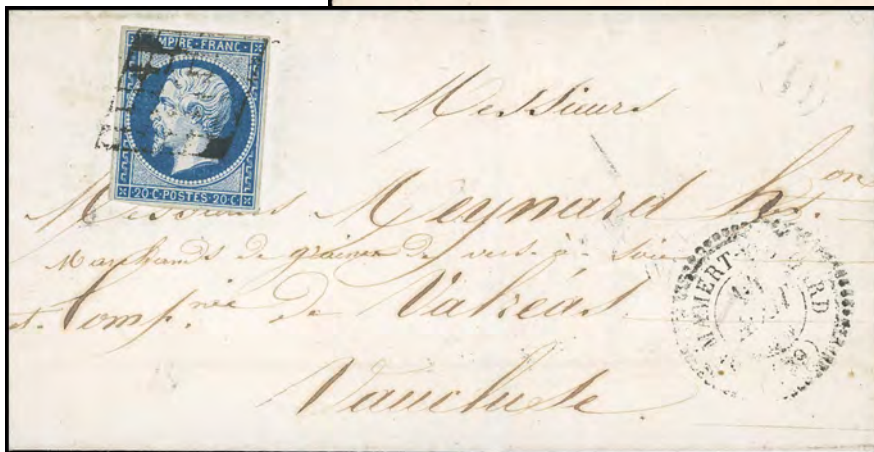 EMPIRE·FRANC·
20·C·POSTES·20·C·
Messieurs
Messieurs Meynard
Marchands de graines de vers-à-soie
et Comp.nie de Valréas
Vaucluse